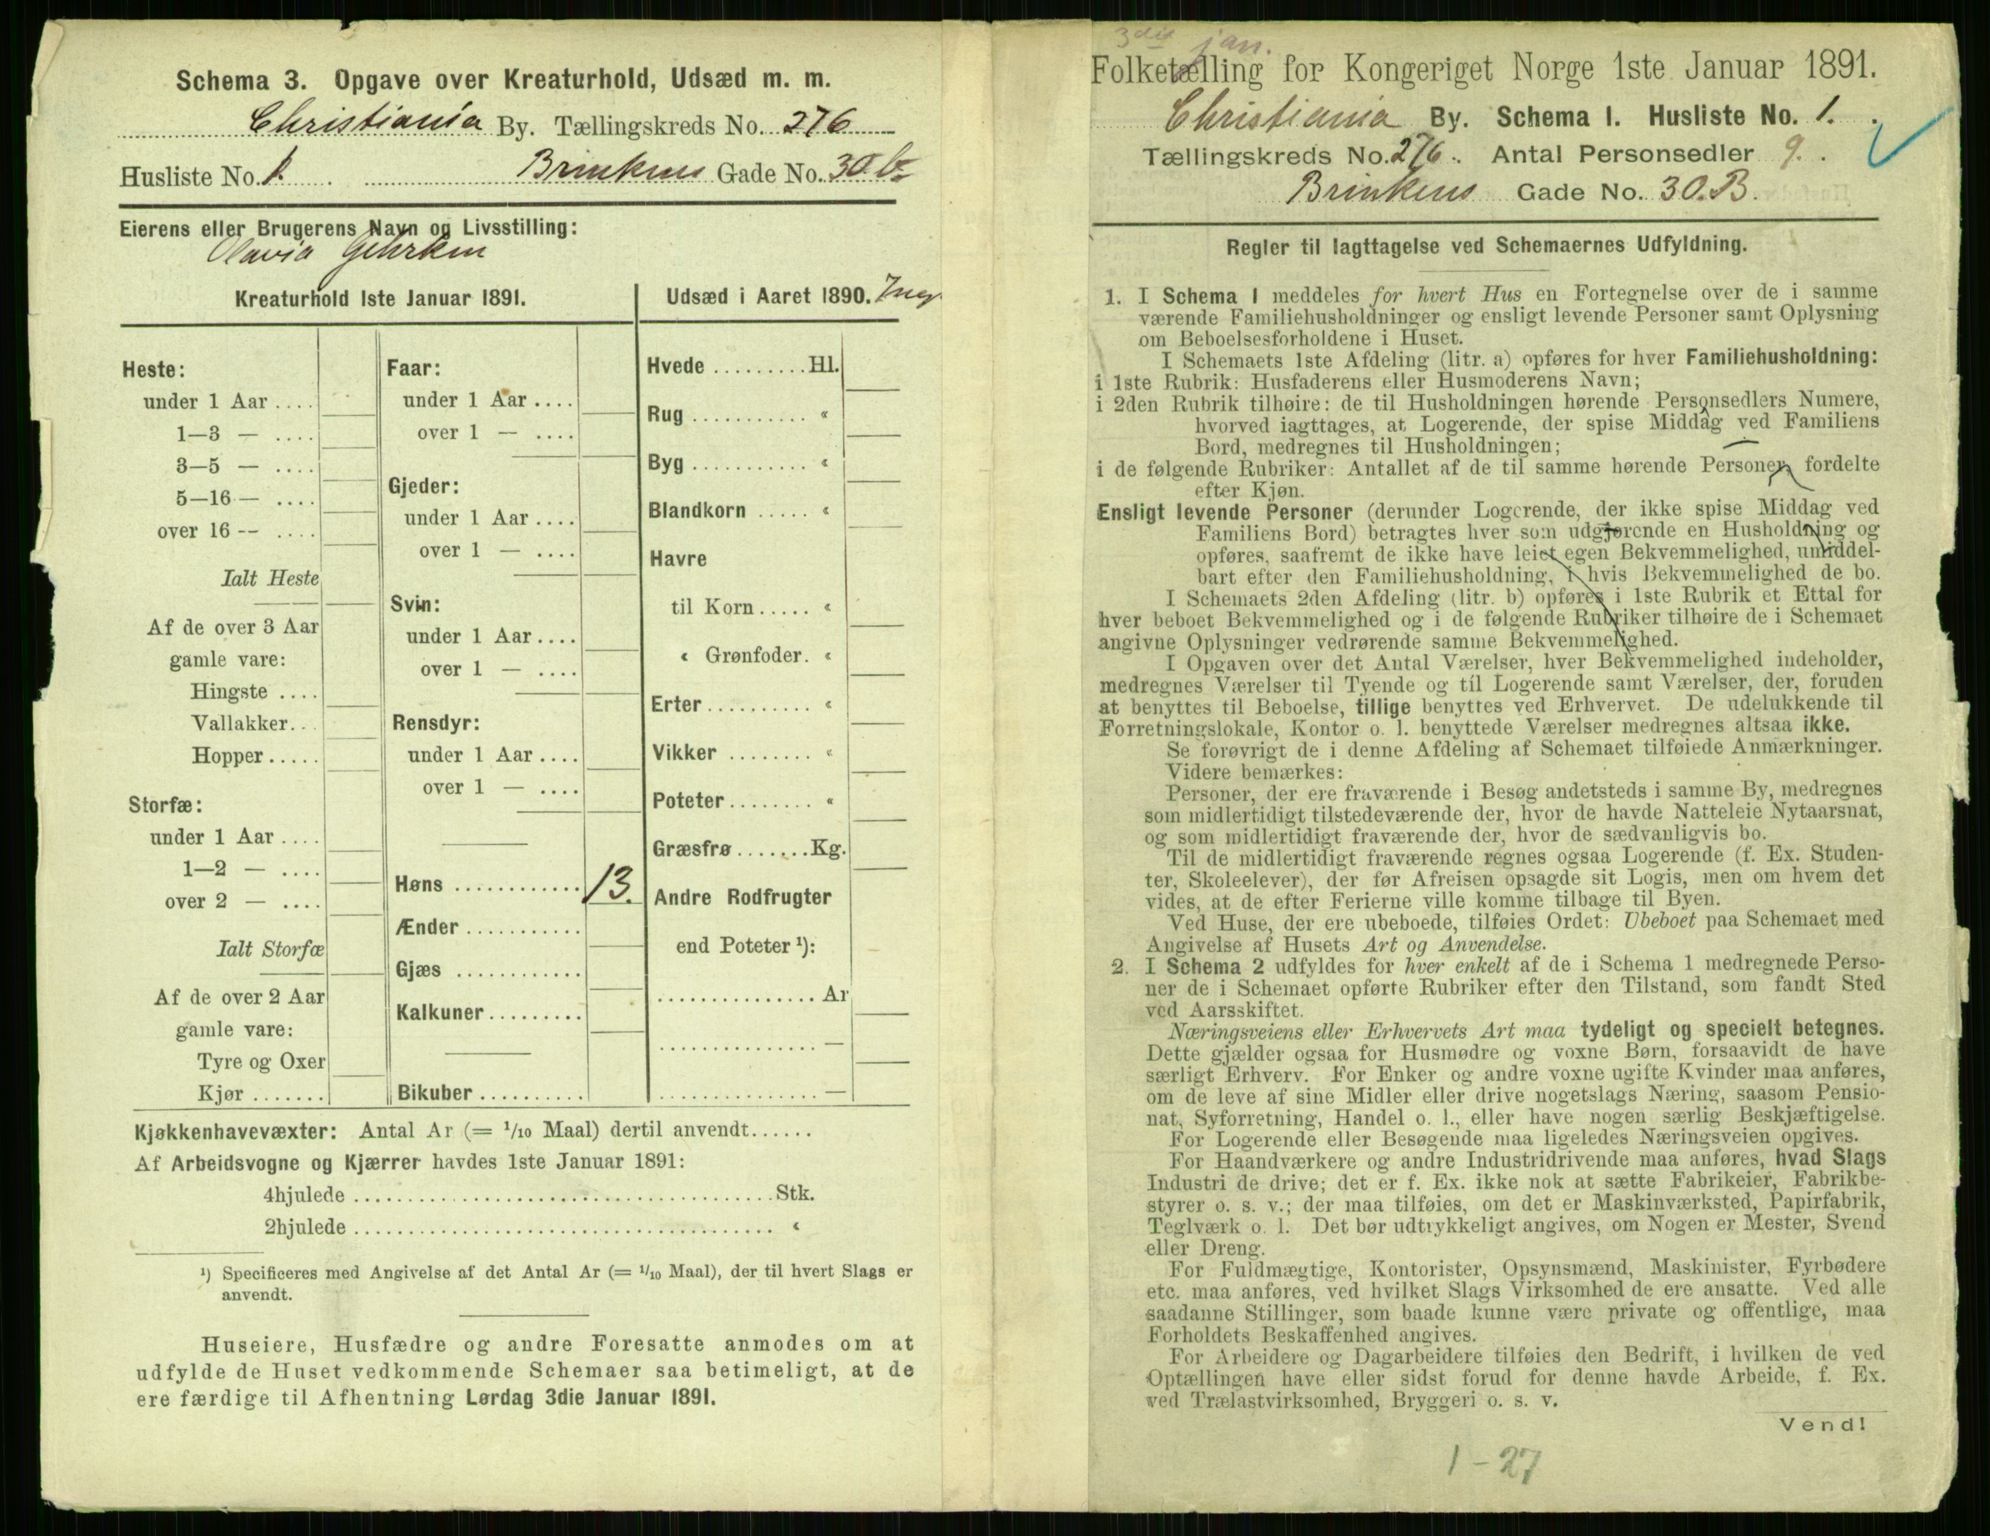 Schema 3. Opgave over Kreaturhold, Udsæd m. m.
Christiania By. Tællingskreds No. 276
Husliste No. 1. Brinkens Gade No. 30 b
Eierens eller Brugerens Navn og Livsstilling:
Olavia Gehrken
Kreaturhold 1ste Januar 1891.
Heste:
under 1 Aar ....
1—3 — ....
3—5 — ....
5—16 — ....
over 16 -- ....
Ialt Heste
Af de over 3 Aar
gamle vare:
Hingste ....
Vallakker...
Hopper.....
Storfæ:
under 1 Aar ....
1—2 — ....
over 2 — ....
Ialt Storfæ
Af de over 2 Aar
gamle vare:
Tyre og Oxer
Kjør .......
Faar:
under 1 Aar ....
over 1 — ....
Gjeder:
under 1 Aar ....
over 1 — ....
Svin:
under 1 Aar ....
over 1 — ....
Rensdyr:
under 1 Aar ....
over 1 — ....
Høns ............ 13.
Ænder ...........
Gjæs ............
Kalkuner.........
Bikuber ..........
Udsæd i Aaret 1890.
Hvede .........Hl.
Rug ........... «
Byg ........... «
Blandkorn ..... «
Havre
til Korn..... «
« Grønfoder. «
Erter.......... «
Vikker ........ «
Poteter........ «
Græsfrø.......Kg.
Andre Rodfrugter
end Poteter ¹):
...............Ar
............... —
............... —
Kjøkkenhavevæxter: Antal Ar (= 1/10 Maal) dertil anvendt......
Af Arbeidsvogne og Kjærrer havdes 1ste Januar 1891:
4hjulede ........................................Stk.
2hjulede ........................................ «
¹) Specificeres med Angivelse af det Antal Ar (= 1/10 Maal), der til hvert Slags er
anvendt.
Huseiere, Husfædre og andre Foresatte anmodes om at
udfylde de Huset vedkommende Schemaer saa betimeligt, at de
ere færdige til Afhentning Lørdag 3die Januar 1891.
3die jan.
Folketælling for Kongeriget Norge 1ste Januar 1891.
Christiania By. Schema I. Husliste No. 1.
Tællingskreds No. 276. Antal Personsedler 9.
Brinkens Gade No. 30.B.
Regler til Iagttagelse ved Schemaernes Udfyldning.
1. I Schema 1 meddeles for hvert Hus en Fortegnelse over de i samme
værende Familiehusholdninger og ensligt levende Personer samt Oplysning
om Beboelsesforholdene i Huset.
I Schemaets 1ste Afdeling (litr. a) opføres for hver Familiehusholdning:
i 1ste Rubrik: Husfaderens eller Husmoderens Navn;
i 2den Rubrik tilhøire: de til Husholdningen hørende Personsedlers Numere,
hvorved iagttages, at Logerende, der spise Middag ved Familiens
Bord, medregnes til Husholdningen;
i de følgende Rubriker: Antallet af de til samme hørende Personer, fordelte
efter Kjøn.
Ensligt levende Personer (derunder Logerende, der ikke spise Middag ved
Familiens Bord) betragtes hver som udgjørende en Husholdning og
opføres, saafremt de ikke have leiet egen Bekvemmelighed, umiddel-
bart efter den Familiehusholdning, i hvis Bekvemmelighed de bo.
I Schemaets 2den Afdeling (litr. b) opføres i 1ste Rubrik et Ettal for
hver beboet Bekvemmelighed og i de følgende Rubriker tilhøire de i Schemaet
angivne Oplysninger vedrørende samme Bekvemmelighed.
I Opgaven over det Antal Værelser, hver Bekvemmelighed indeholder,
medregnes Værelser til Tyende og til Logerende samt Værelser, der, foruden
at benyttes til Beboelse, tillige benyttes ved Erhvervet. De udelukkende til
Forretningslokale, Kontor o. l. benyttede Værelser medregnes altsaa ikke.
Se forøvrigt de i denne Afdeling af Schemaet tilføiede Anmærkninger.
Videre bemærkes:
Personer, der ere fraværende i Besøg andetsteds i samme By, medregnes
som midlertidigt tilstedeværende der, hvor de havde Natteleie Nytaarsnat,
og som midlertidigt fraværende der, hvor de sædvanligvis bo.
Til de midlertidigt fraværende regnes ogsaa Logerende (f. Ex. Studen-
ter, Skoleelever), der før Afreisen opsagde sit Logis, men om hvem det
vides, at de efter Ferierne ville komme tilbage til Byen.
Ved Huse, der ere ubeboede, tilføies Ordet: Ubeboet paa Schemaet med
Angivelse af Husets Art og Anvendelse.
2. I Schema 2 udfyldes for hver enkelt af de i Schema 1 medregnede Perso-
ner de i Schemaet opførte Rubriker efter den Tilstand, som fandt Sted
ved Aarsskiftet.
Næringsveiens eller Erhvervets Art maa tydeligt og specielt betegnes.
Dette gjælder ogsaa for Husmødre og voxne Børn, forsaavidt de have
særligt Erhverv. For Enker og andre voxne ugifte Kvinder maa anføres,
om de leve af sine Midler eller drive nogetslags Næring, saasom Pensio-
nat, Syforretning, Handel o. l., eller have nogen særlig Beskjæftigelse.
For Logerende eller Besøgende maa ligeledes Næringsveien opgives.
For Haandværkere og andre Industridrivende maa anføres, hvad Slags
Industri de drive; det er f. Ex. ikke nok at sætte Fabrikeier, Fabrikbe-
styrer o. s. v.; der maa tilføies, om det er Maskinværksted, Papirfabrik,
Teglværk o. l. Det bør udtrykkeligt angives, om Nogen er Mester, Svend
eller Dreng.
For Fuldmægtige, Kontorister, Opsynsmænd, Maskinister, Fyrbødere
etc. maa anføres, ved hvilket Slags Virksomhed de ere ansatte. Ved alle
saadanne Stillinger, som baade kunne være private og offentlige, maa
Forholdets Beskaffenhed angives.
For Arbeidere og Dagarbeidere tilføies den Bedrift, i hvilken de ved
Optællingen have eller sidst forud for denne havde Arbeide, f. Ex.
ved Trælastvirksomhed, Bryggeri o. s. v.
Vend!
1-27